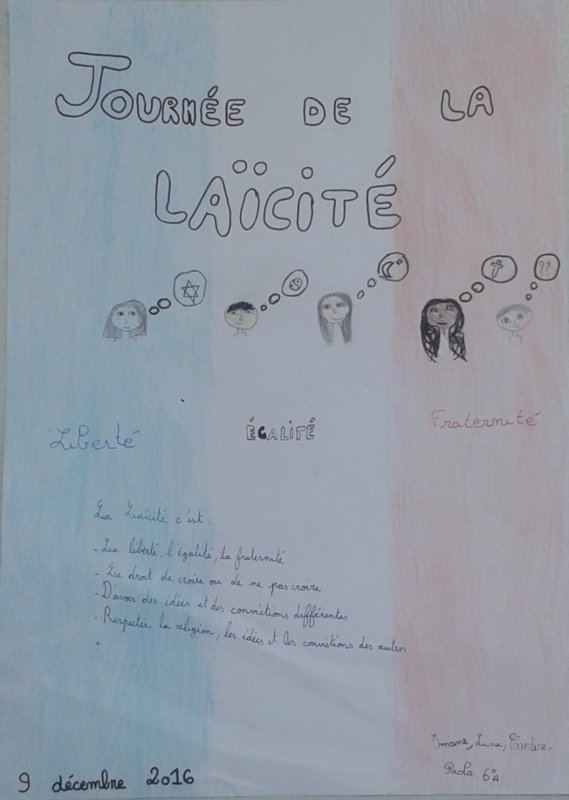 JOURNÉE DE LA
LAÏCITÉ
??
Liberté
ÉGALITÉ
Fraternité
La Laïcité c'est
- La liberté, l'égalité, la fraternité
- Le droit de croire ou de ne pas croire
- D'avoir des idées et des convictions différentes
- Respecter la religion, les idées et les convictions des autres
Imane, Luna,
Paola 6°A
9 décembre 2016